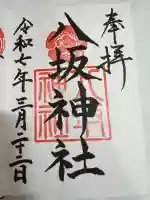 奉拝
八坂神社
令和七年三月二十二日